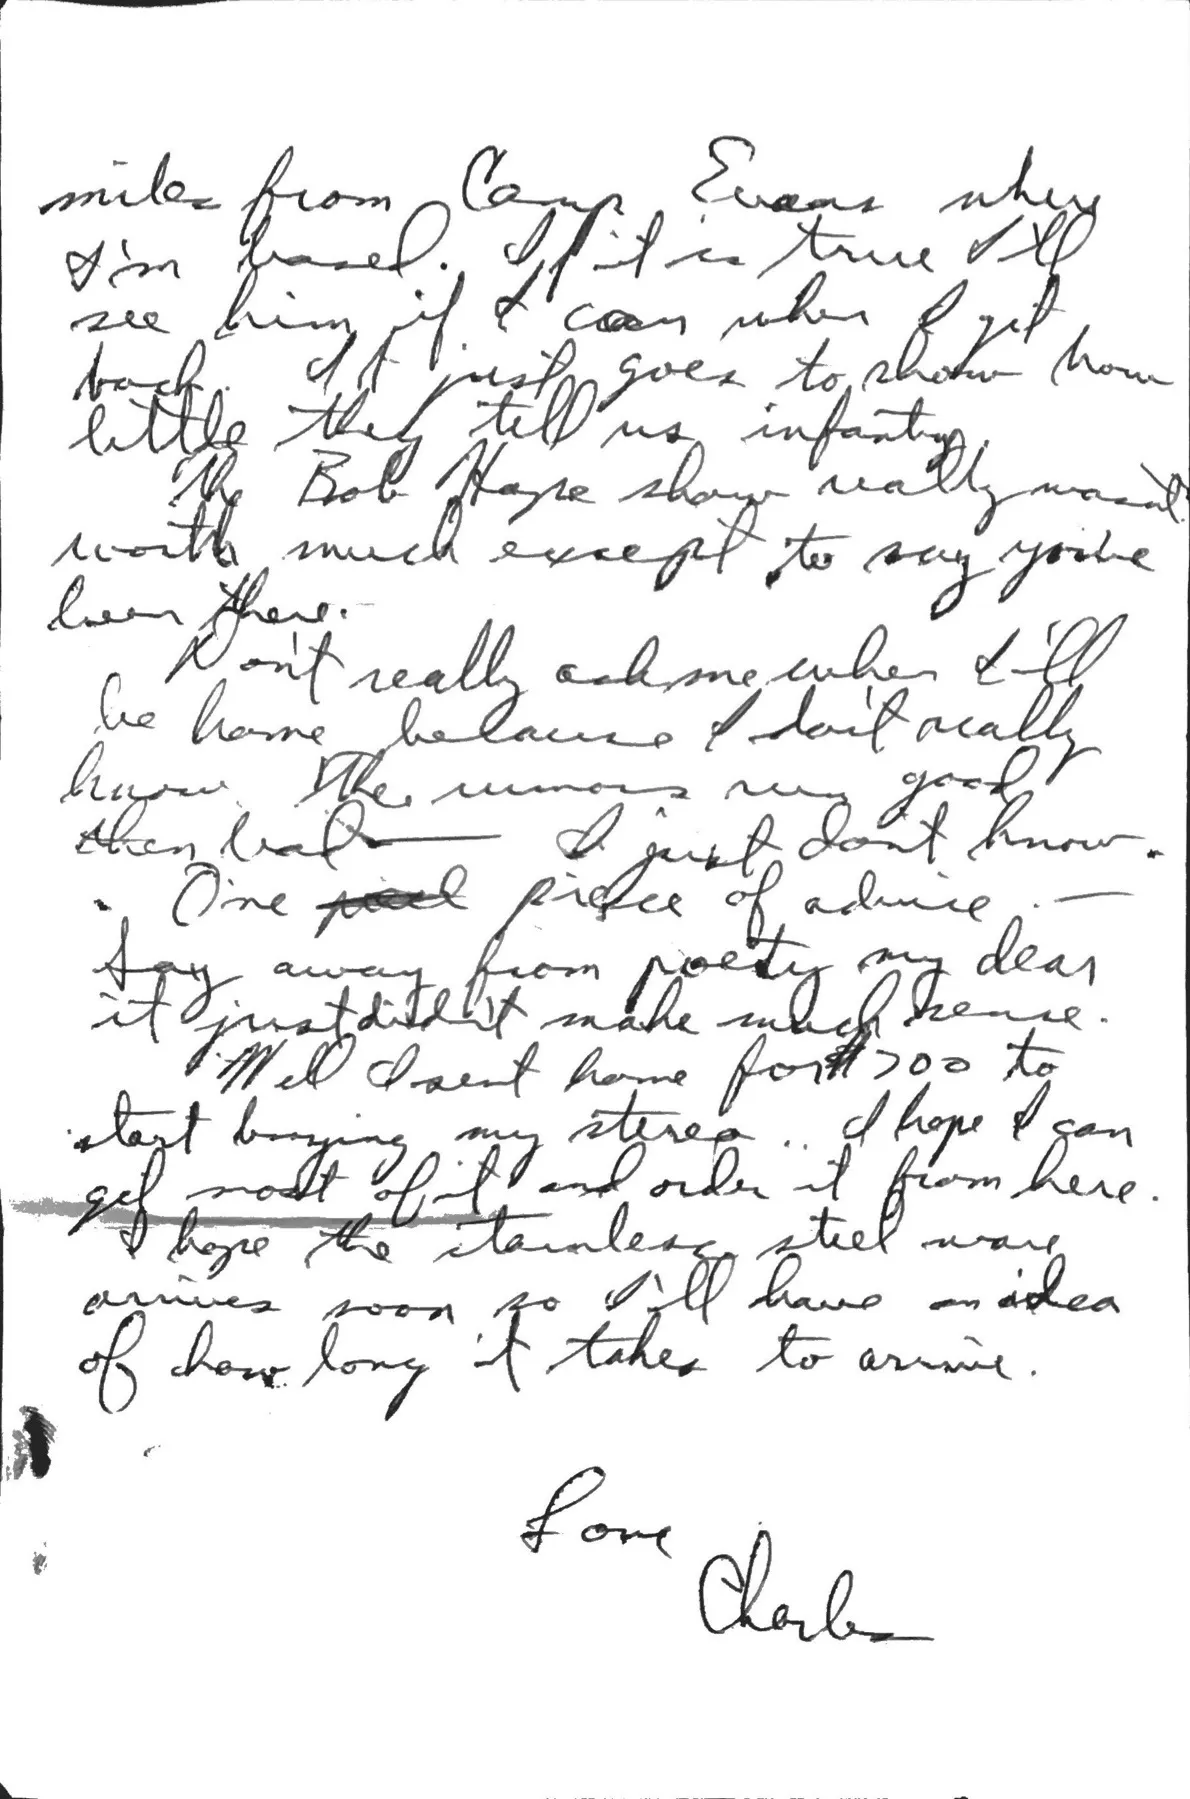 miles from Camp Evans where
I'm based. If it is true I'll
see him if I can when I get
back. It just goes to show how
little they tell us infantry.
The Bob Hope show really wasn't
worth much except to say you've
been there.
Don't really ask me when I'll
be home because I don't really
know. The rumors run good
then bad — I just don't know.
One piece of advice. —
Stay away from poetry my dear
it just didn't make much sense.
Well I sent home for $700 to
start buying my stereo.. I hope I can
get most of it and order it from here.
I hope the stainless steel ware
arrives soon so I'll have an idea
of how long it takes to arrive.
Love
Charles